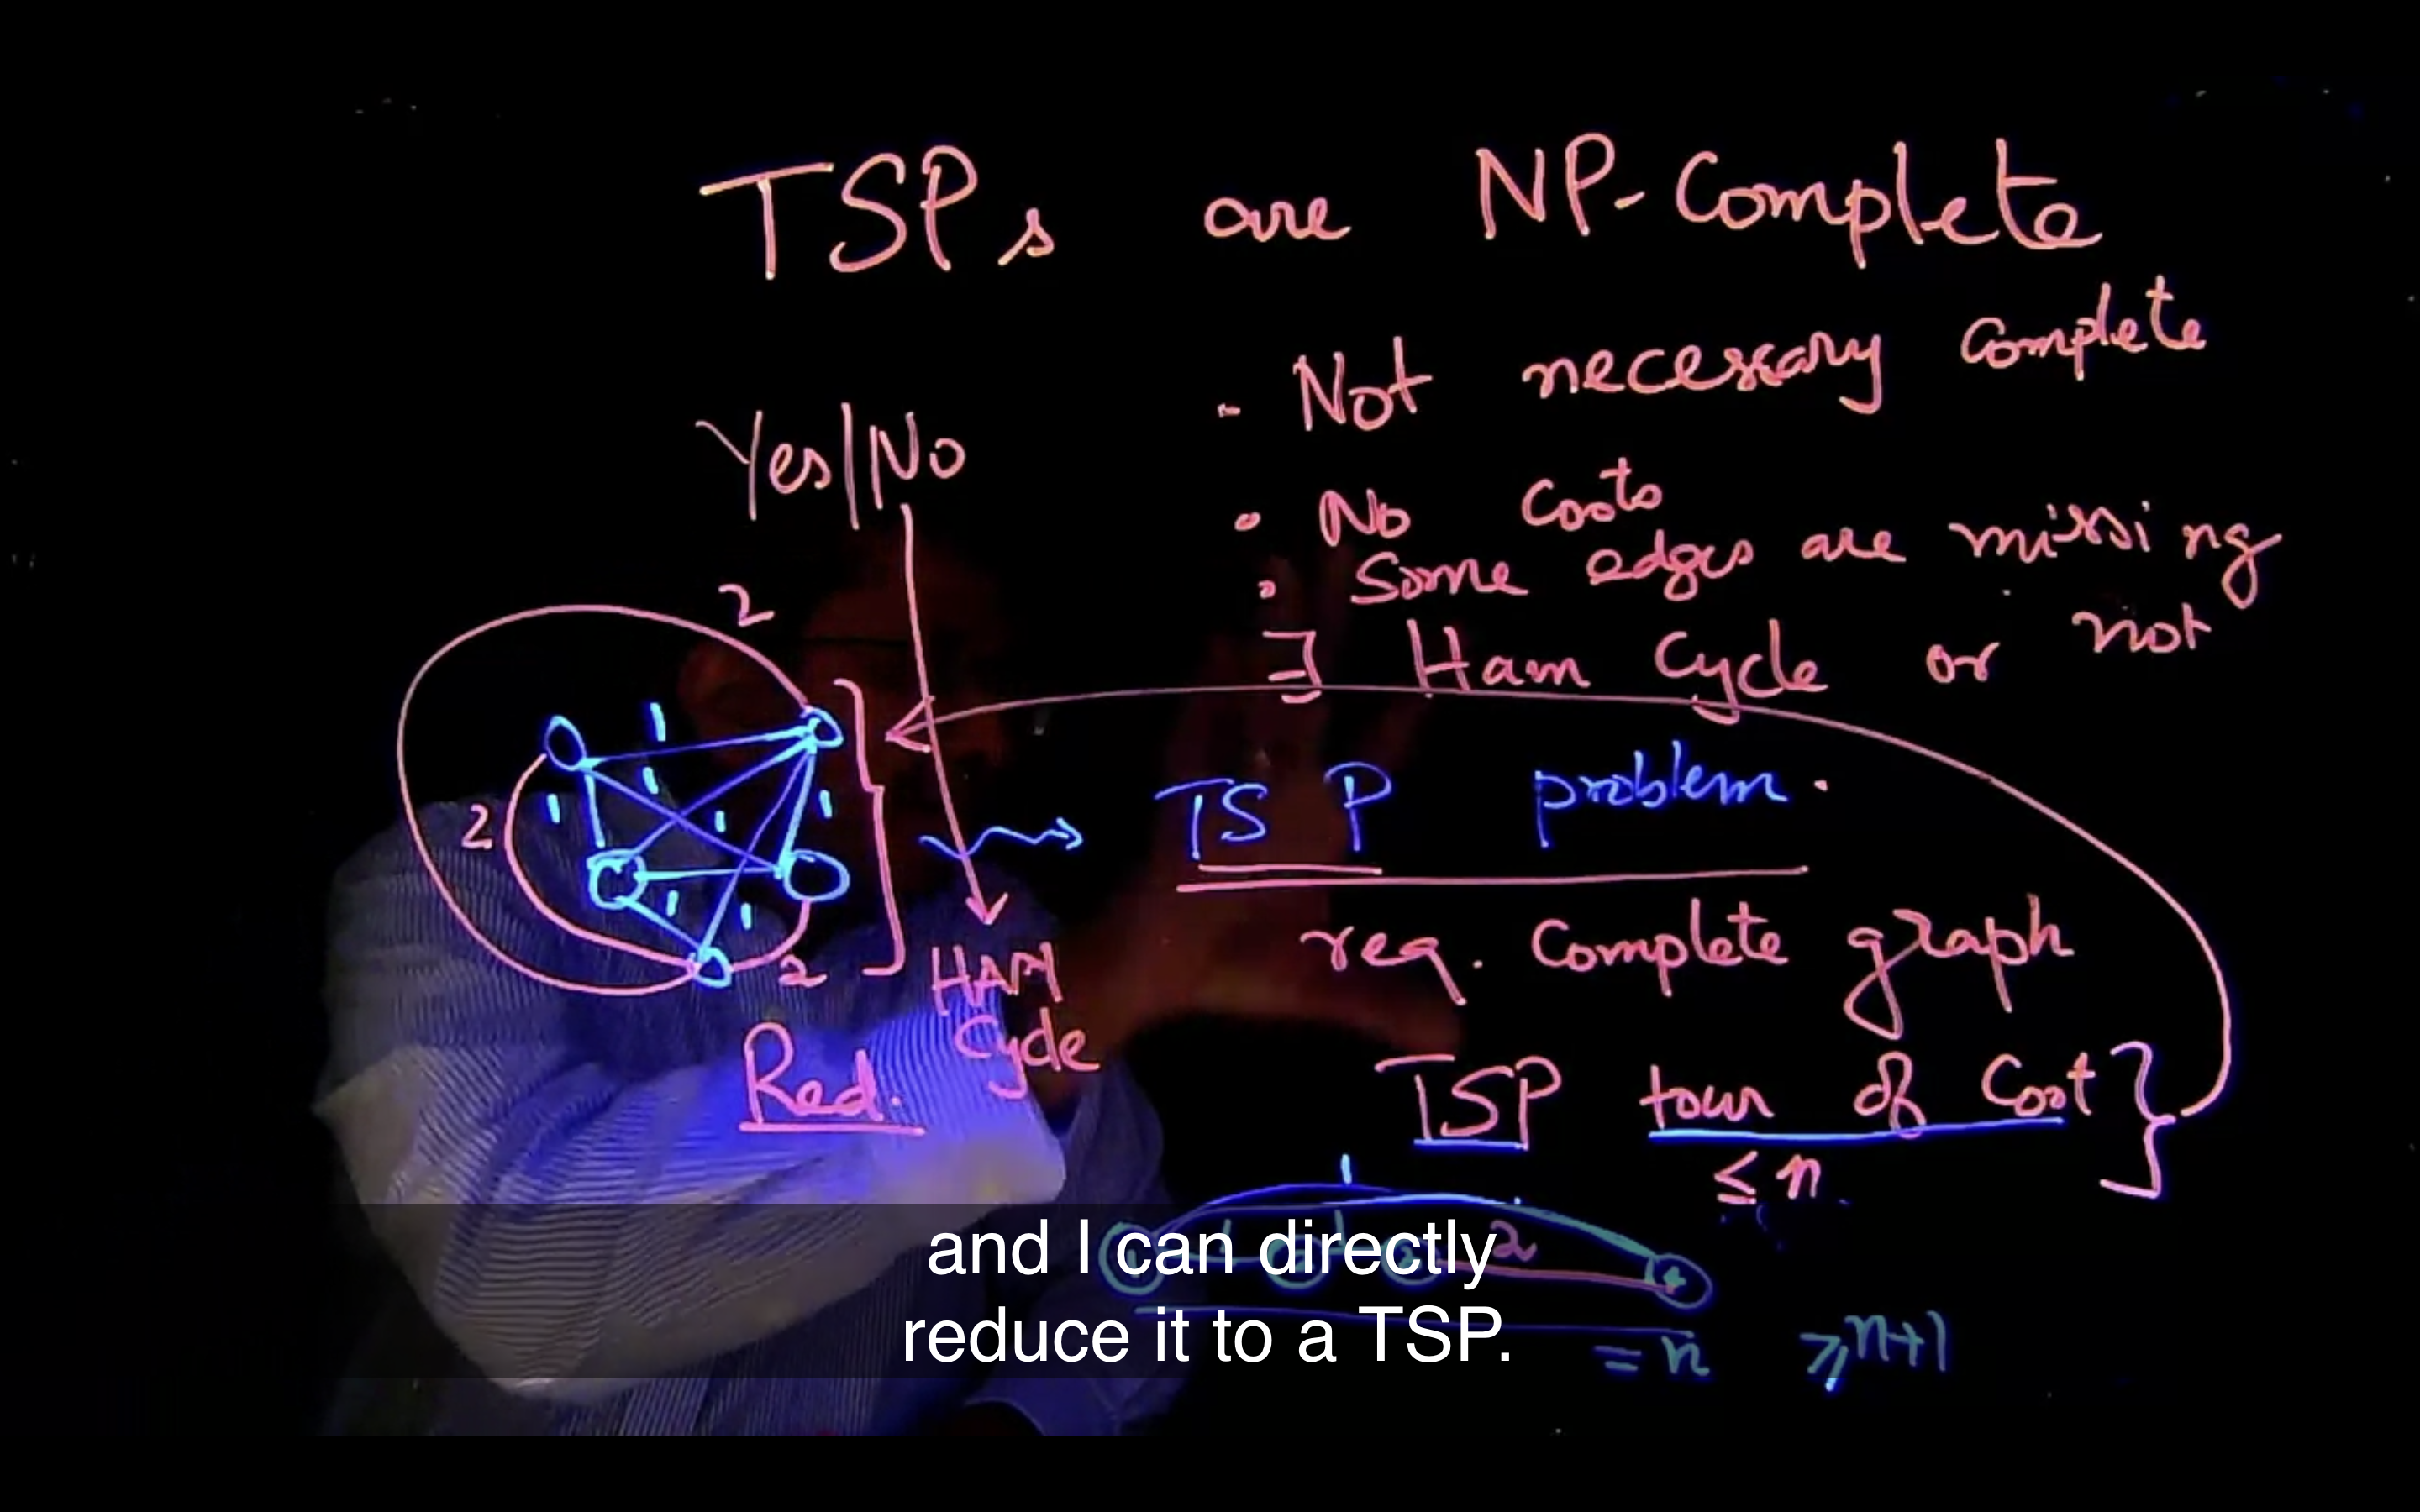 TSPs are NP-Complete
- Not necessary complete
Yes|No
• No Costs
• Some edges are missing
∃ Ham Cycle or not
2
1
1
1
1
1
2
TSP problem.
1
1
2
HAM
Cycle
req. Complete graph
Red.
TSP tour of Cost
≤ n
1
2
4
and I can directly
reduce it to a TSP.
= n ≥ n+1